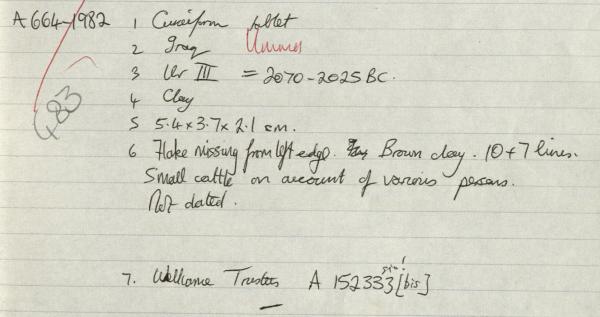 A 664-1982 1 Cuneiform tablet
2 Iraq Umma
3 Ur III = 2070-2025 BC.
4 Clay
5 5.4 x 3.7 x 2.1 cm.
6 Flake missing from left edge. Brown clay. 10 + 7 lines.
Small cattle on account of various persons.
Not dated.
683
7. Wellcome Trustees A 152333 [bis]